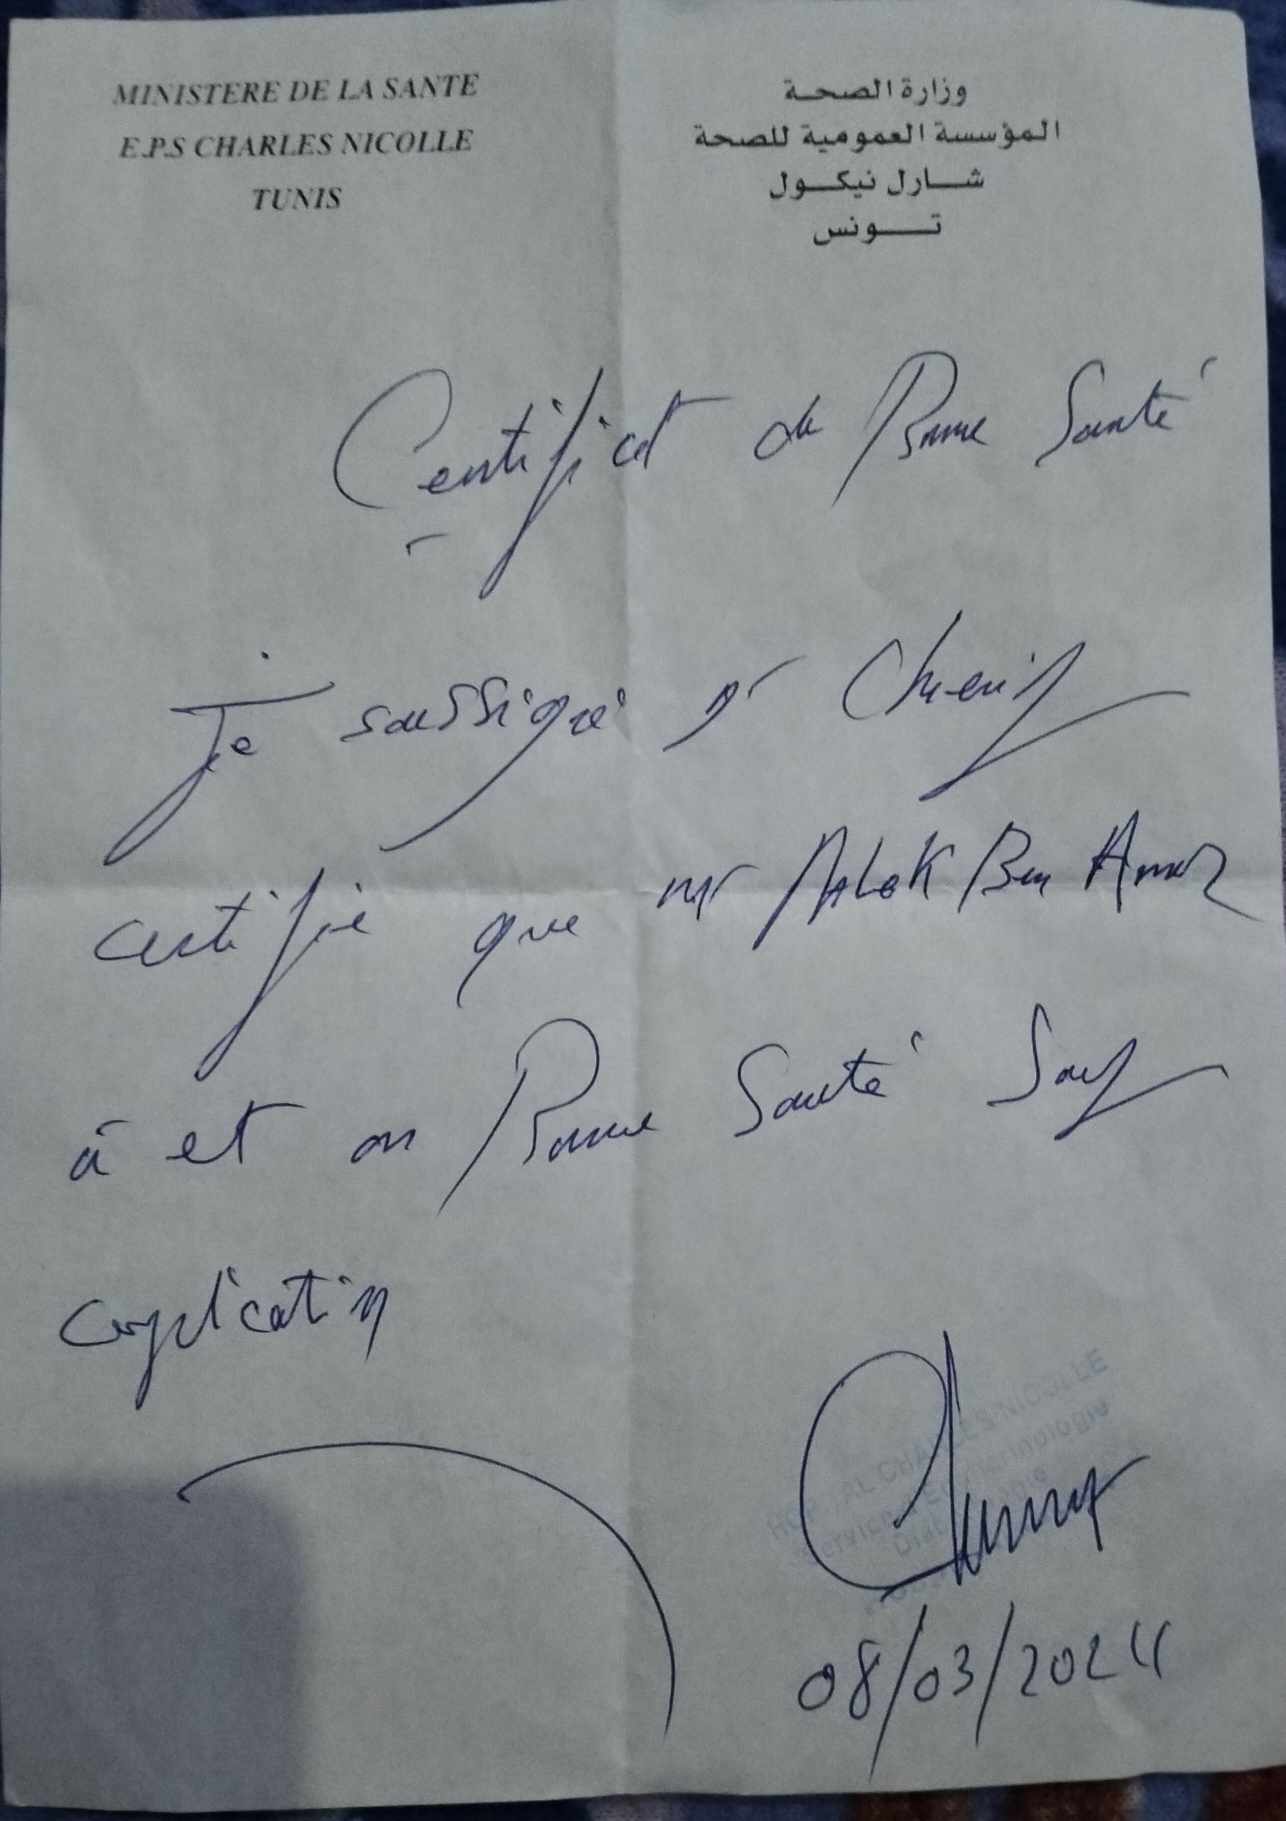 MINISTERE DE LA SANTE
E.P.S CHARLES NICOLLE
TUNIS
وزارة الصحة
المؤسسة العمومية للصحة
شارل نيكول
تونس
Certificat de Bonne Santé
Je soussigné Dr
certifie que Mr Malek Ben Amor
à et en Bonne Santé Sauf
complication
HOPITAL CHARLES NICOLLE
Service Endocrinologie
08/03/2024